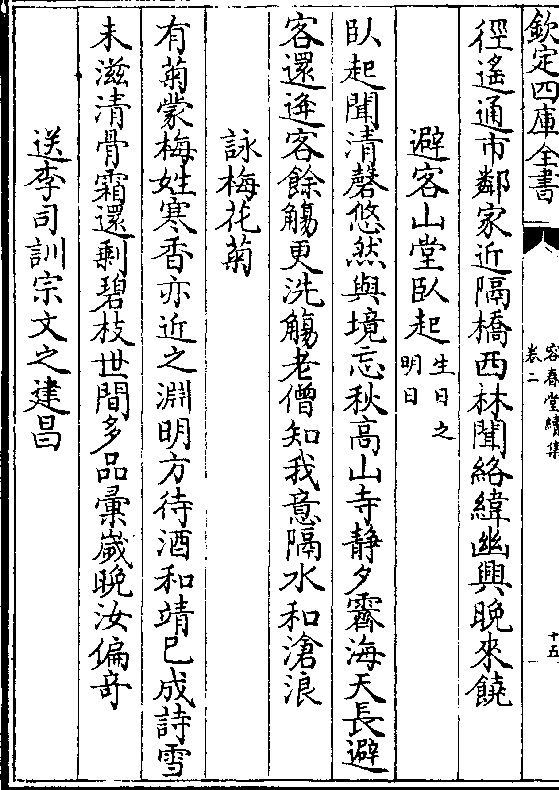 欽定四庫全書
容春堂續集
卷二
十五
徑遙通市鄰家近隔橋西林聞絡緯幽興晩來饒
避客山堂臥起生日之
明日
臥起聞清磬悠然與境忘秋高山寺靜夕霽海天長避
客還逢客餘觴更洗觴老僧知我意隔水和滄浪
詠梅花菊
有菊蒙梅姓寒香亦近之淵明方待酒和靖已成詩雪
未滋清骨霜還剩碧枝世間多品彚嵗晩汝偏奇
送李司訓宗文之建昌